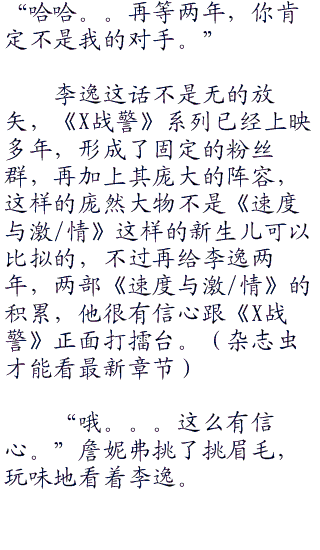 “哈哈。。再等两年，你肯
定不是我的对手。”
李逸这话不是无的放
矢，《X战警》系列已经上映
多年，形成了固定的粉丝
群，再加上其庞大的阵容，
这样的庞然大物不是《速度
与激/情》这样的新生儿可以
比拟的，不过再给李逸两
年，两部《速度与激/情》的
积累，他很有信心跟《X战
警》正面打擂台。（杂志虫
才能看最新章节）
“哦。。。这么有信
心。”詹妮弗挑了挑眉毛，
玩味地看着李逸。